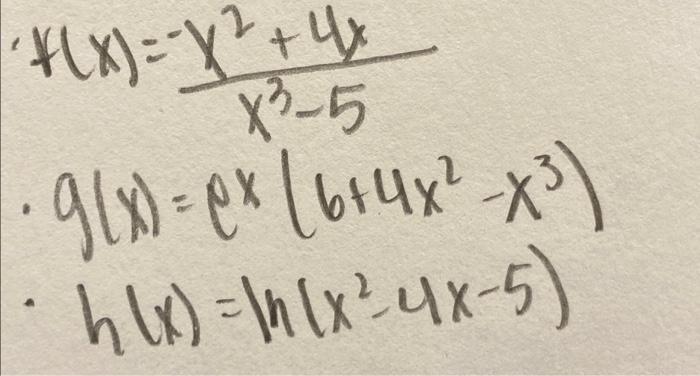 · f(x) = -x² + 4x
x³ - 5
· g(x) = eˣ (6 + 4x² - x³)
· h(x) = ln(x² - 4x - 5)